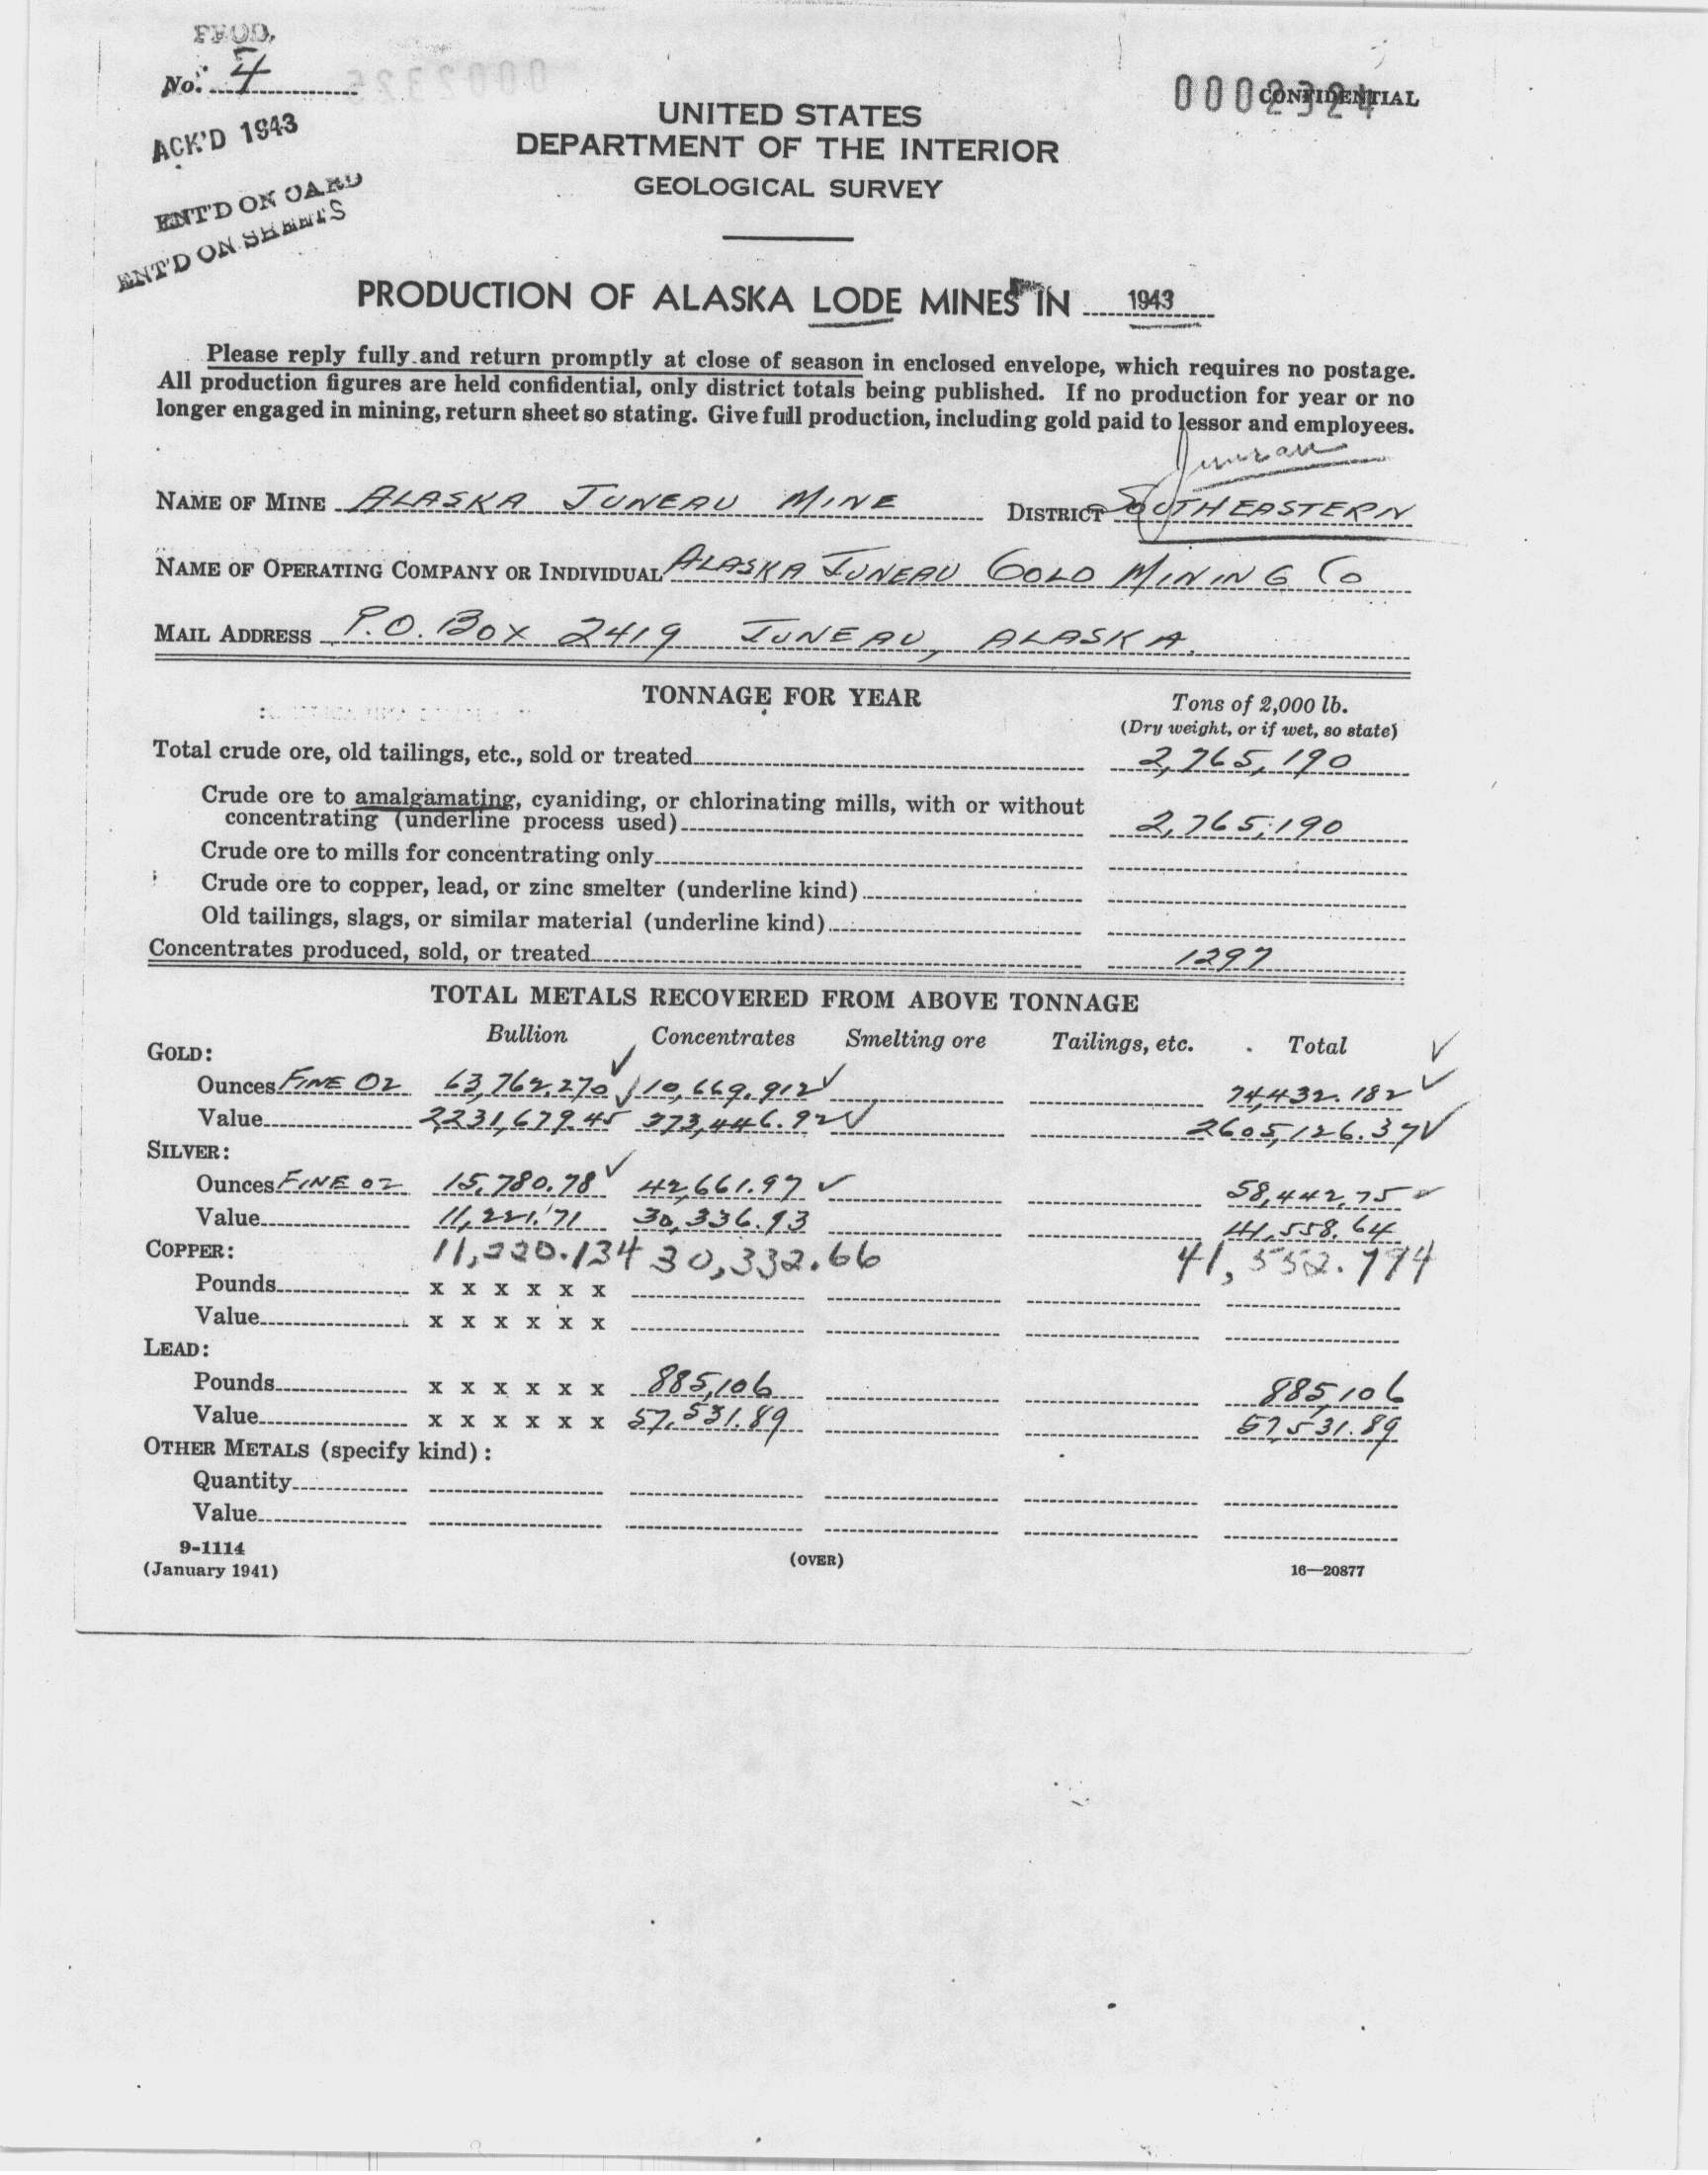 PROD.
No. 4
0002324
CONFIDENTIAL
ACK'D 1943
ENT'D ON CARD
ENT'D ON SHEETS
UNITED STATES
DEPARTMENT OF THE INTERIOR
GEOLOGICAL SURVEY
PRODUCTION OF ALASKA LODE MINES IN 1943
Please reply fully and return promptly at close of season in enclosed envelope, which requires no postage.
All production figures are held confidential, only district totals being published. If no production for year or no
longer engaged in mining, return sheet so stating. Give full production, including gold paid to lessor and employees.
Juneau
NAME OF MINE ALASKA JUNEAU MINE DISTRICT SOUTHEASTERN
NAME OF OPERATING COMPANY OR INDIVIDUAL ALASKA JUNEAU GOLD MINING CO
MAIL ADDRESS P.O. BOX 2419 JUNEAU, ALASKA.
TONNAGE FOR YEAR Tons of 2,000 lb.
(Dry weight, or if wet, so state)
Total crude ore, old tailings, etc., sold or treated 2,765,190
Crude ore to amalgamating, cyaniding, or chlorinating mills, with or without
concentrating (underline process used) 2,765,190
Crude ore to mills for concentrating only
Crude ore to copper, lead, or zinc smelter (underline kind)
Old tailings, slags, or similar material (underline kind)
Concentrates produced, sold, or treated 1297
TOTAL METALS RECOVERED FROM ABOVE TONNAGE
Bullion Concentrates Smelting ore Tailings, etc. Total
GOLD:
Ounces FINE OZ 63,762.270 10,669.912 74,432.182
Value 2,231,679.45 373,446.92 2605,126.37
SILVER:
Ounces FINE OZ 15,780.78 42,661.97 58,442.75
Value 11,221.71 30,336.93 41,558.64
COPPER: 11,220.134 30,332.66 41,552.794
Pounds x x x x x x
Value x x x x x x
LEAD:
Pounds x x x x x x 885,106 885,106
Value x x x x x x 57,531.89 57,531.89
OTHER METALS (specify kind):
Quantity
Value
9-1114
(January 1941) (OVER) 16—20877